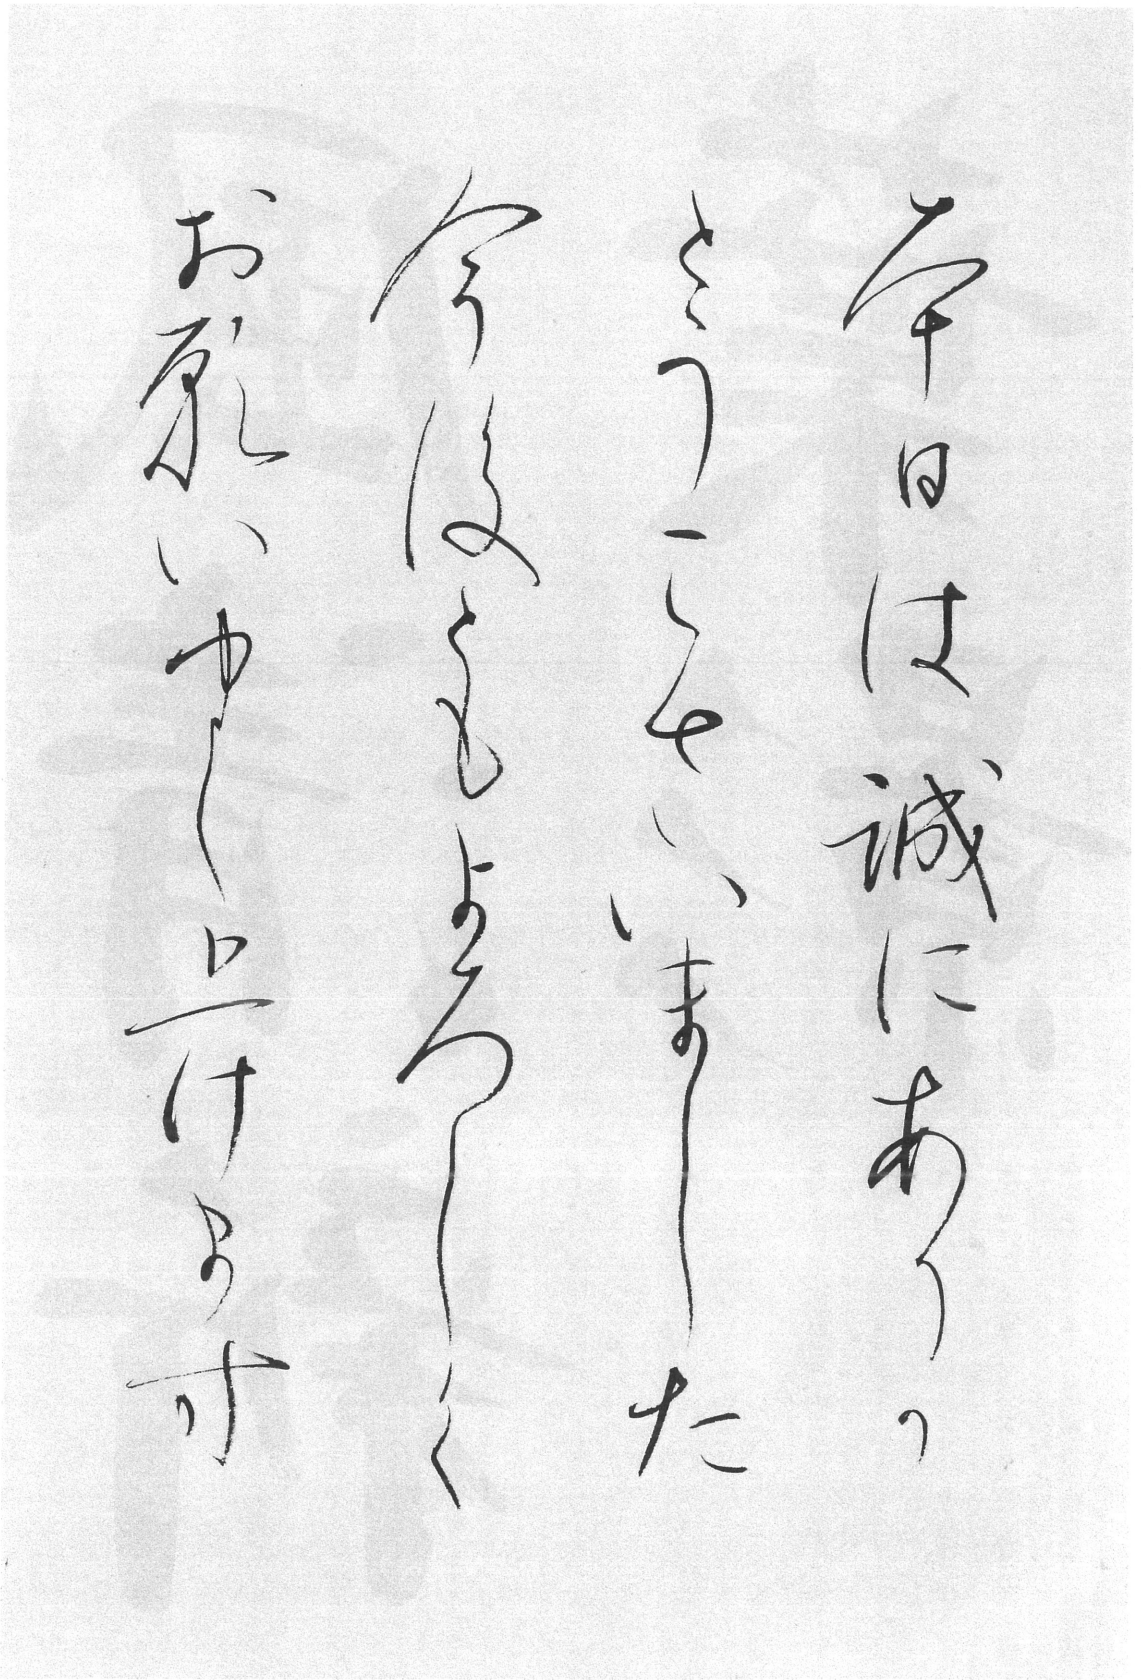 本日は誠にありが
とうございました
今後ともよろしく
お願い申し上げます